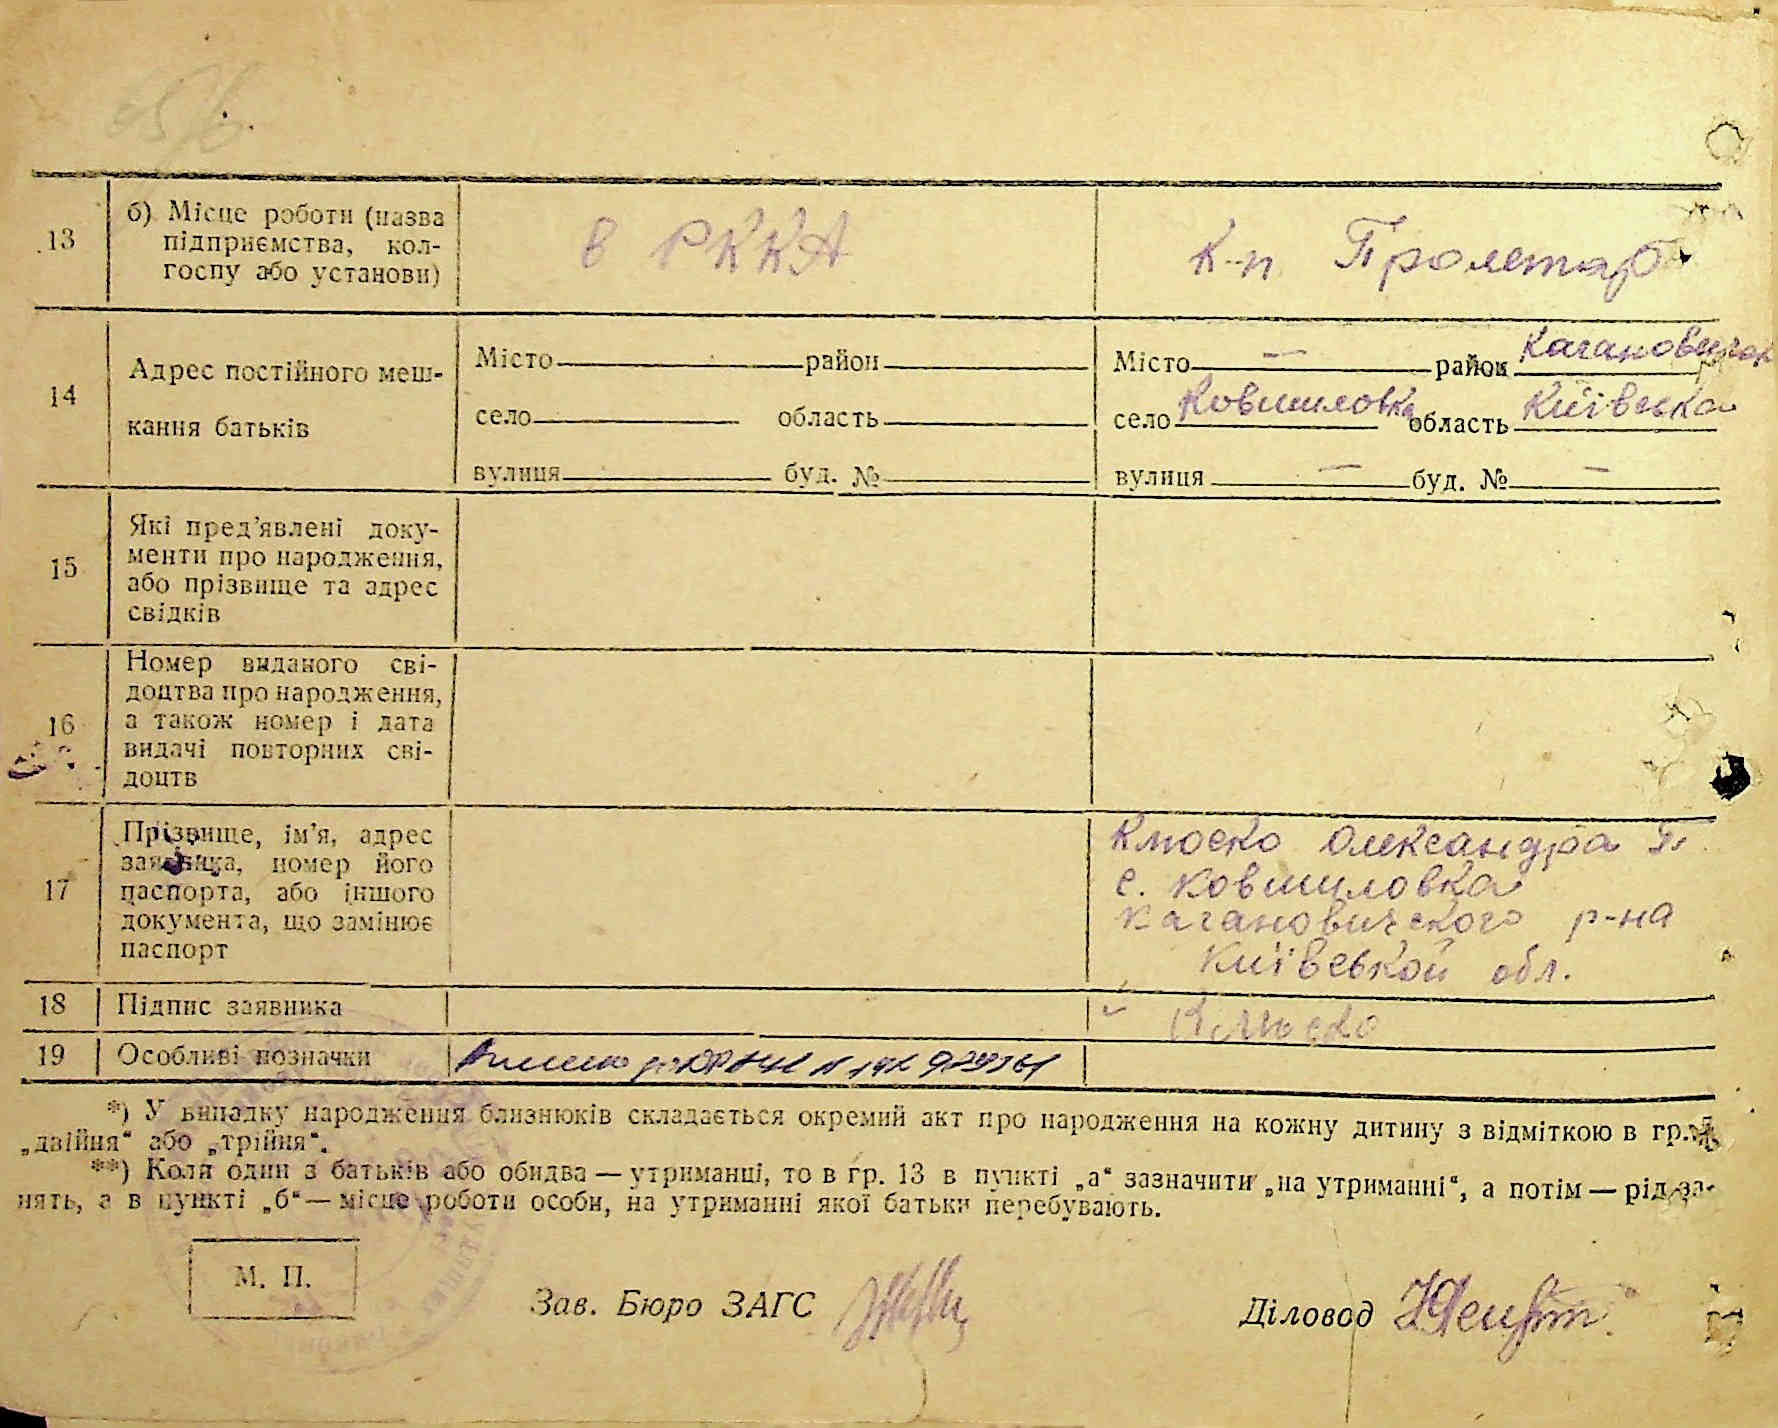 13
б) Місце роботи (назва
підприємства, кол-
госпу або установи)
в РККА
К-п Пролетар
14
Адрес постійного меш-
кання батьків
Місто район
село область
вулиця буд. №
Місто — район Кагановичск
село Ковшиловка область Київська
вулиця — буд. № —
15
Які пред'явлені доку-
менти про народження,
або прізвище та адрес
свідків
16
Номер виданого сві-
доцтва про народження,
а також номер і дата
видачі повторних сві-
доцтв
17
Прізвище, ім'я, адрес
заявника, номер його
паспорта, або іншого
документа, що замінює
паспорт
Олександра
с. Ковшиловка
Кагановичского р-на
Київськой обл.
18
Підпис заявника
19
Особливі позначки
*) У випадку народження близнюків складається окремий акт про народження на кожну дитину з відміткою в гр.
„двійня“ або „трійня“.
**) Коли один з батьків або обидва — утриманці, то в гр. 13 в пункті „а“ зазначити „на утриманні“, а потім — рід за-
нять, а в пункті „б“ — місце роботи особи, на утриманні якої батьки перебувають.
М. П.
Зав. Бюро ЗАГС
Діловод